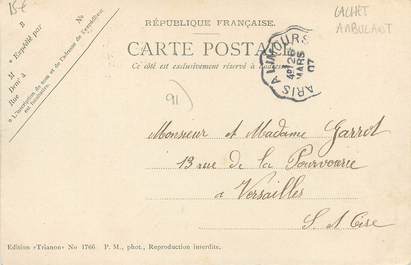 15€
CACHET
AMBULANT
RÉPUBLIQUE FRANÇAISE.
CARTE POSTALE
Ce côté est exclusivement réservé à
B No
« Expédié par
M
Demt à
Rue
« L'inscription du nom et de l'adresse de l'expéditeur
est facultative.
PARIS A LIMOURS
4º 26
MARS
07
91)
Monsieur et Madame Garrot
13 rue de la Pourvoirie
à Versailles
S. et Oise
Edition «Trianon» No 1766 P. M., phot., Reproduction interdite.